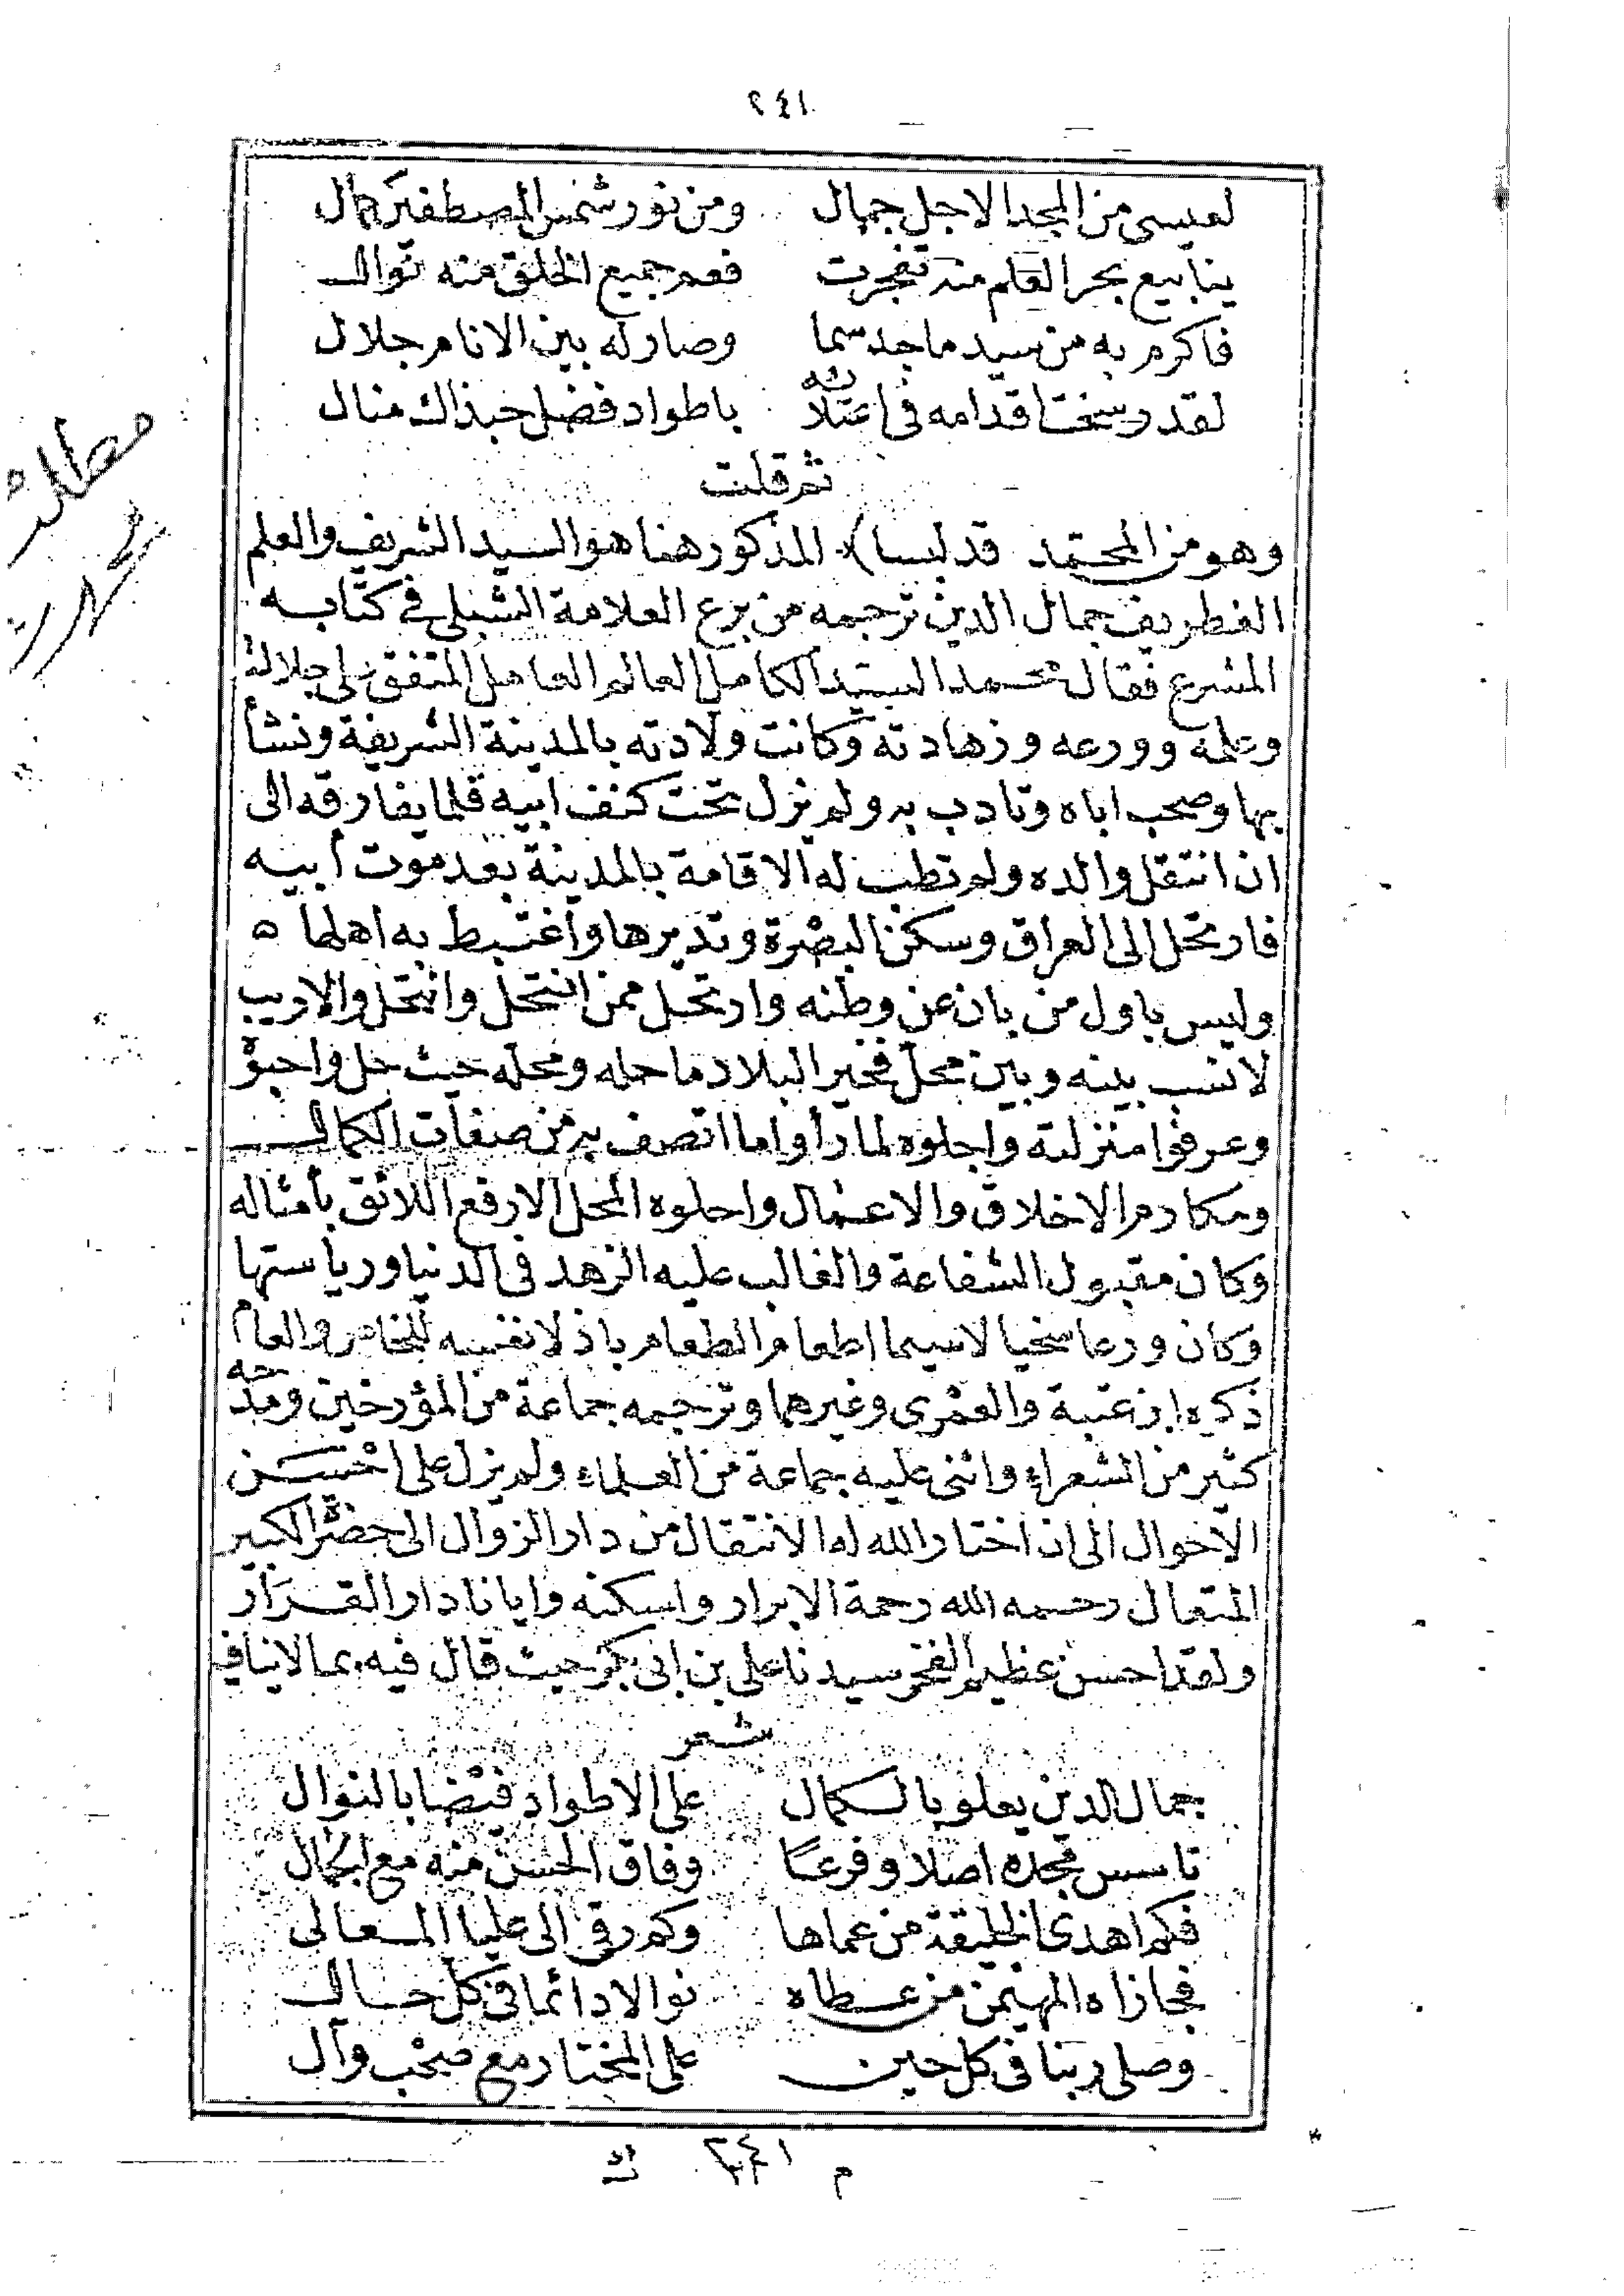 ٢٤١
لعيسى من المجد الاجل جمال ومن نور شمس المصطفين كمال
ينابيع بحر العلم منه تفجرت فعم جميع الخلق منه نوال
فاكرم به من سيد ماجد سما وصار له بين الانام جلال
لقد رسخت اقدامه فى اعتلائه باطواد فضل حبذاك منال
ثم قلت
وهو من المحتمد قد لبسا) المذكور هنا هو السيد الشريف والعلم
الغطريف جمال الدين ترجمه من برع العلامة الشبلى فى كتابه
المشرع فقال محمد السيد الكامل العالم العامل المتفق على جلالته
وعلمه وورعه وزهادته وكانت ولادته بالمدينة الشريفة ونشأ
بها وصحب اباه وتادب به ولم يزل تحت كنف ابيه قلما يفارقه الى
ان انتقل والده ولم تطب له الاقامة بالمدينة بعد موت أبيه
فارتحل الى العراق وسكن البصرة وتديرها واغتبط به اهلها ه
وليس باول من بان عن وطنه وارتحل ممن انتحل وانتحل والاديب
لا نسب بينه وبين محل فخير البلاد ما حله ومحله حيث حل واحبوه
وعرفوا منزلته واجلوه لما رأوا ما اتصف به من صفات الكمال
ومكارم الاخلاق والاعمال واحلوه المحل الارفع اللائق بأمثاله
وكان مقبول الشفاعة والغالب عليه الزهد فى الدنيا ورياستها
وكان ورعا سخيا لاسيما اطعام الطعام باذلا نفسه للخاص والعام
ذكره ابن عتبة والعمرى وغيرهما وترجمه جماعة من المؤرخين ومدحه
كثير من الشعراء واثنى عليه جماعة من العلماء ولم يزل على احسن
الاحوال الى ان اختار الله له الانتقال من دار الزوال الى حضرة الكبير
المتعال رحمه الله رحمة الابرار واسكنه وايانا دار القرار
ولقد احسن عظيم الفخر سيدنا على بن ابى بكر حيث قال فيه بما لا ينافيه
شعر
جمال الدين يعلو بالكمال على الاطواد فيضا بالنوال
تاسس مجده اصلا وفرعا وفاق الحسن منه مع الجمال
فكم اهدى الخليقة من عماها وكم رقى الى عليا المعالى
فجازاه المهيمن من عطاه نوالا دائما فى كل حال
وصلى ربنا فى كل حين على المختار مع صحب وآل
م ٢٤١